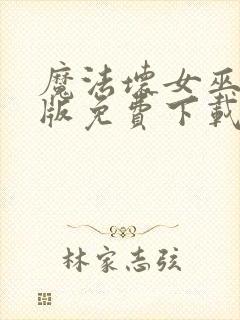 魔法壞女巫
版免費下載
林家志弦